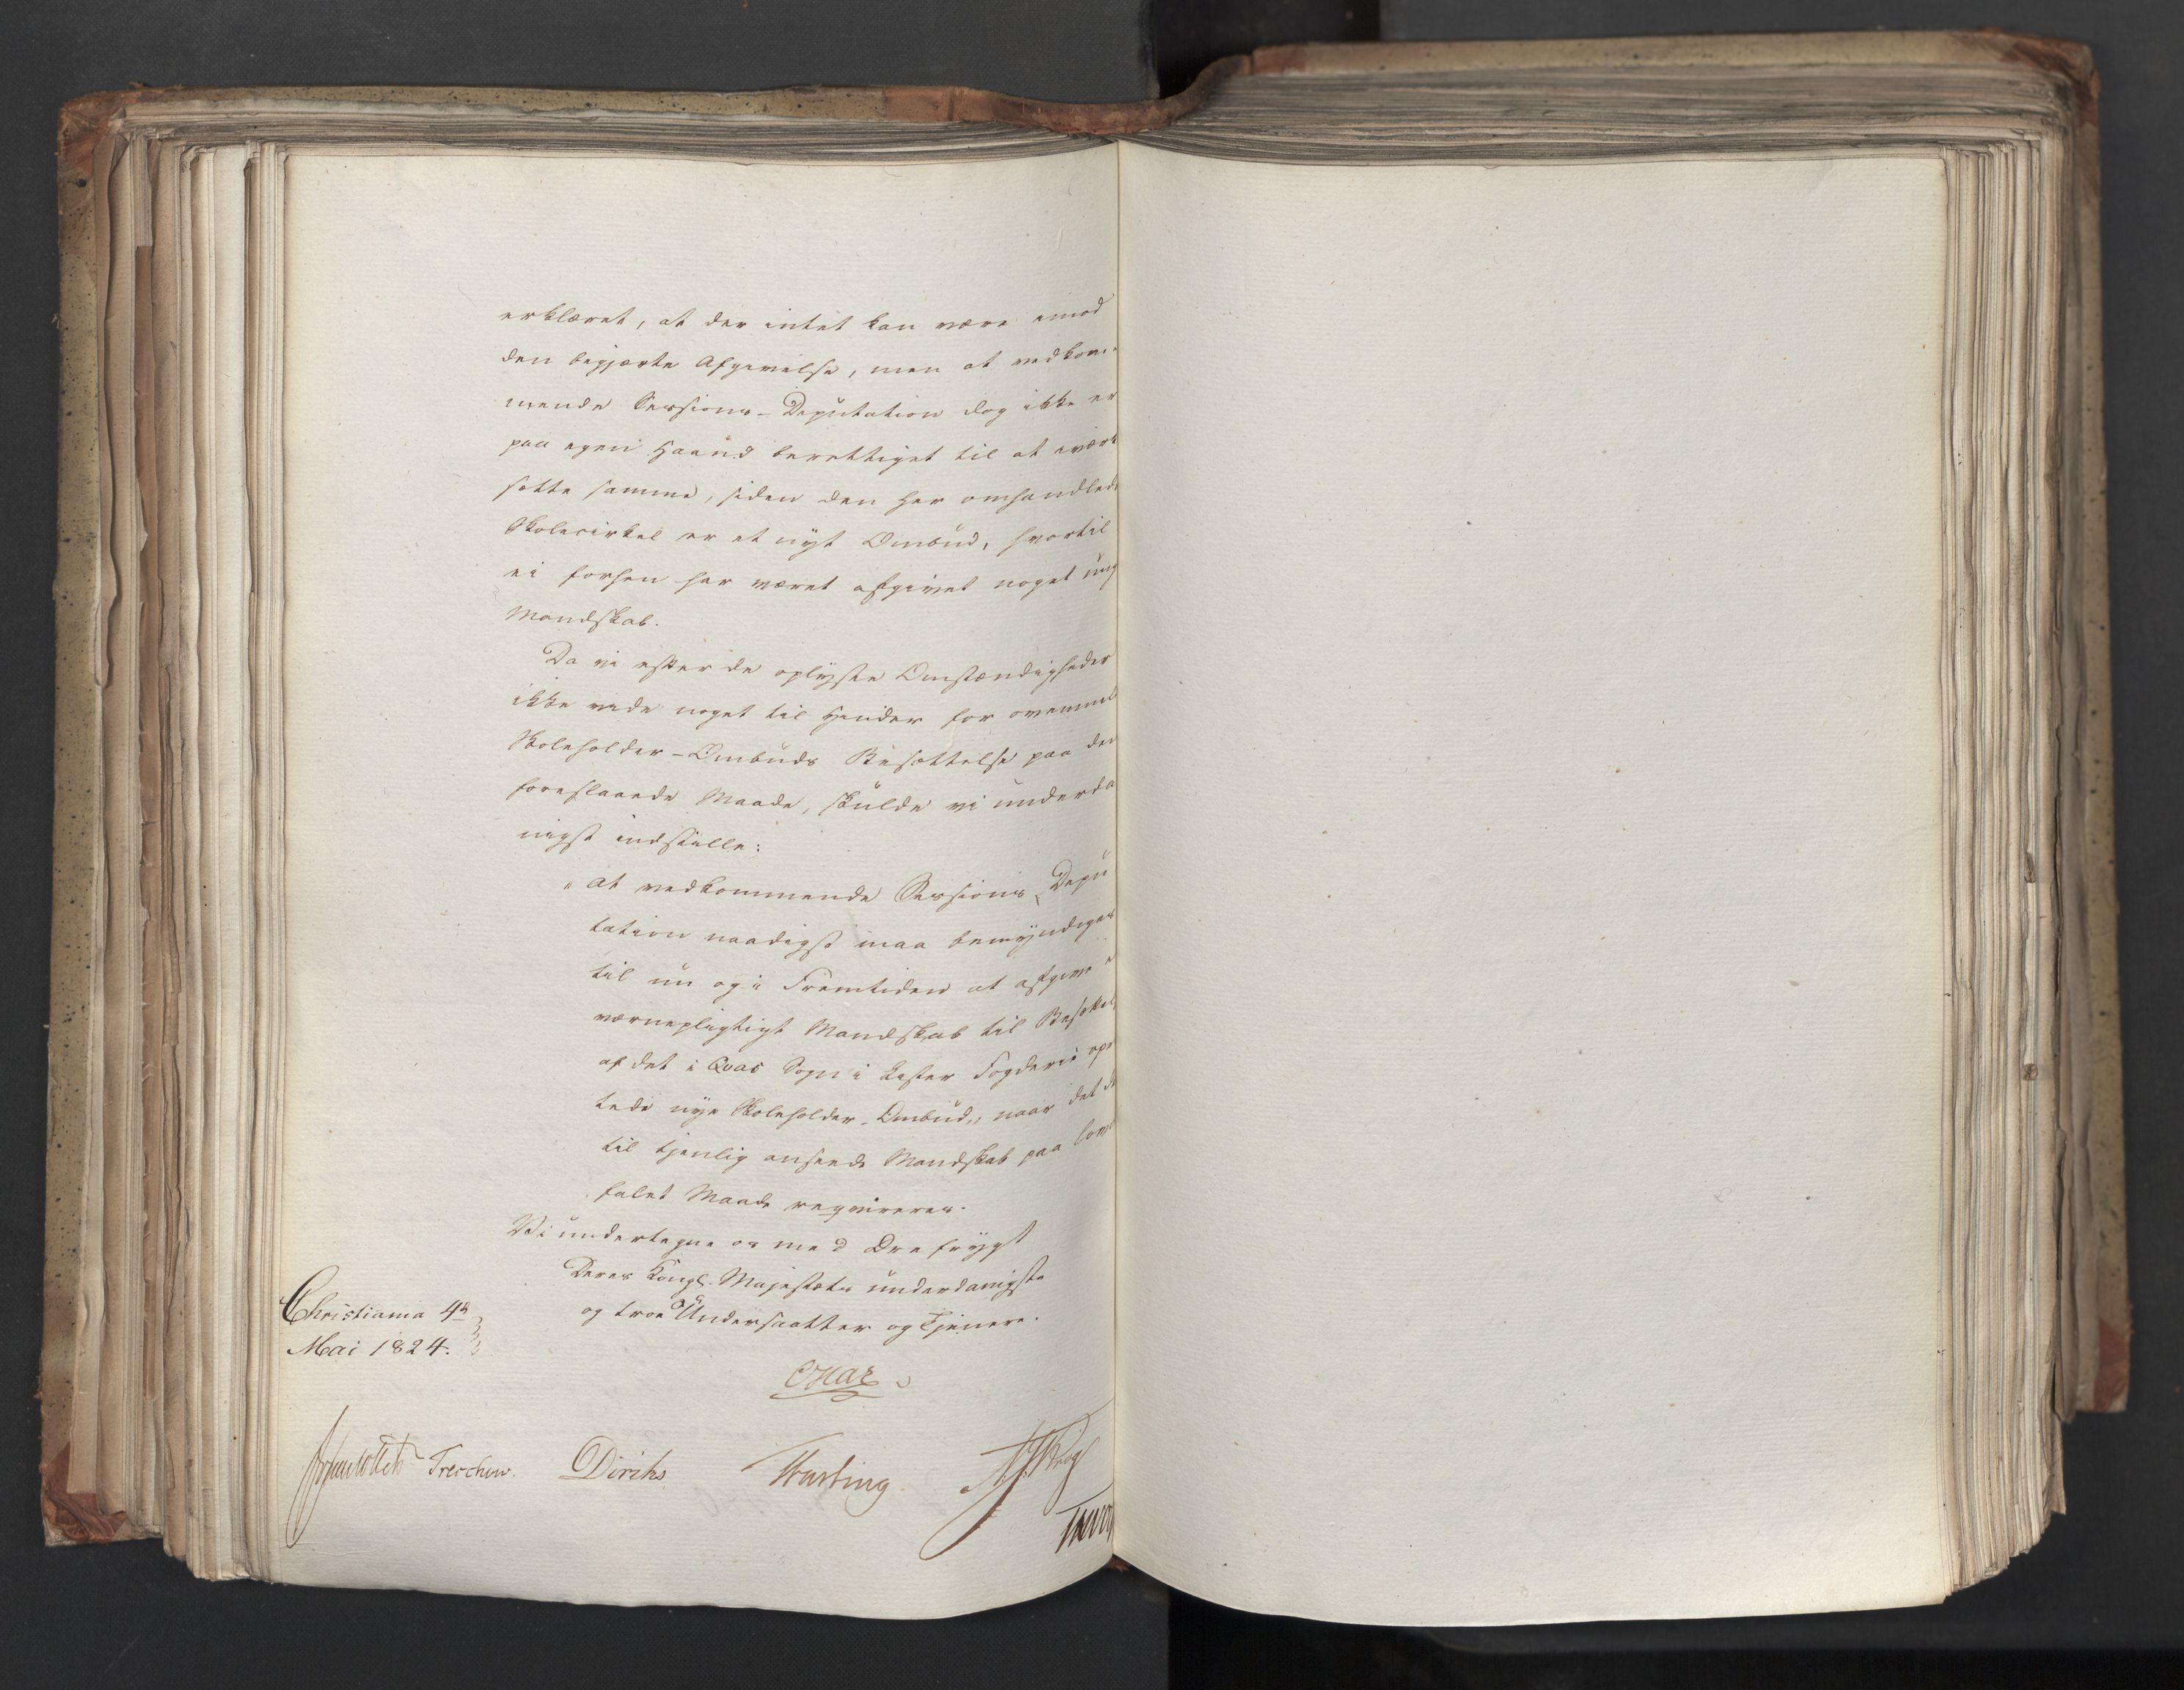 erklæret, at der intet kan være imod
den begjærte Afgivelse, men at vedkom-
mende Sessions-Deputation dog ikke er
paa egen Haand berettiget til at iværk
sætte samme, siden den her omhandlede
Skolecirkel er et nyt Ombud, hvortil
ei forhen har været afgivet noget ungt
Mandskab.
Da vi efter de oplyste Omstændigheder
ikke vide noget til Hinder for ovenmeldt
Skoleholder-Ombuds Besættelse paa den
foreslaaede Maade, skulde vi underda
nigst indstille:
"at vedkommende Sessions-Depu
tation naadigst maa bemyndiges
til nu og i Fremtiden at afgive
værnepligtigt Mandskab til Besættel
af det i Qvas Sogn i Lister Fogderie opr
tede nye Skoleholder-Ombud, naar det der
til tjenlig ansede Mandskab paa lovbe
falet Maade reqvireres.
Vi undertegne os med Dre frygt
Deres Kongl. Majestæts underdanigste
og troe Undersaatter og Tjenere.
Christiania 4de
Mai 1824.
Treschow. Diriks